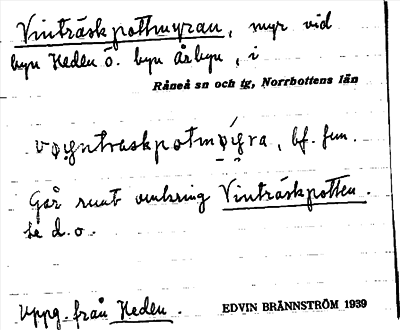 Vinträskpottmyran, myr vid
byn Heden o. byn Årbyn, i
Råneå sn och tg, Norrbottens län
bf. fun.
Går runt omkring Vinträskpotten.
se d.o.
Uppg. från Heden.
EDVIN BRÄNNSTRÖM 1939